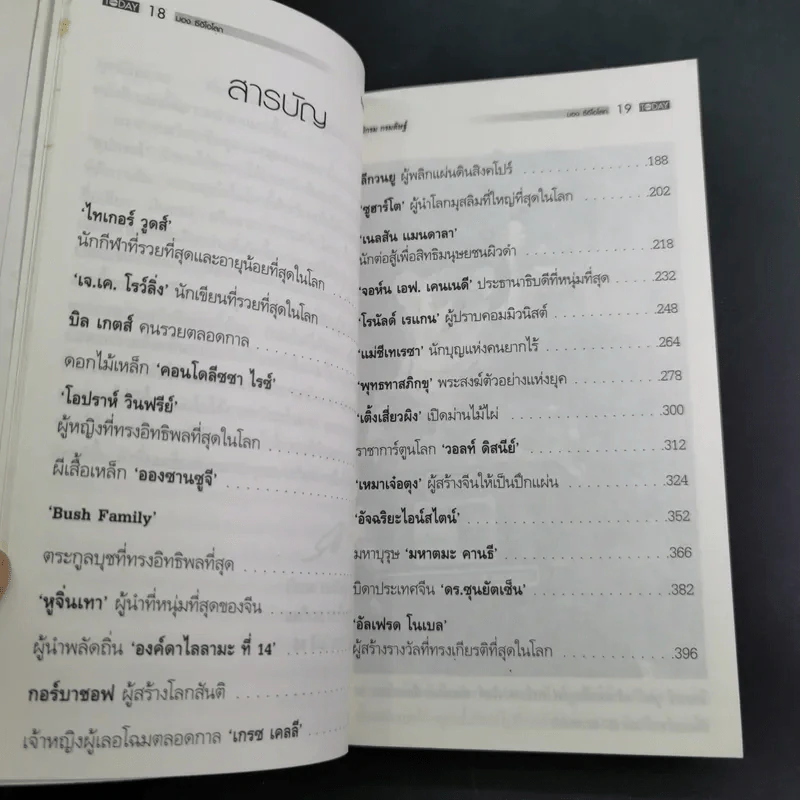 TODAY 18 มอง ซีอีโอโลก
สารบัญ
‘ไทเกอร์ วูดส์’
นักกีฬาที่รวยที่สุดและอายุน้อยที่สุดในโลก
‘เจ.เค. โรว์ลิ่ง’ นักเขียนที่รวยที่สุดในโลก
บิล เกตส์ คนรวยตลอดกาล
ดอกไม้เหล็ก ‘คอนโดลีซซา ไรซ์’
‘โอปราห์ วินฟรีย์’
ผู้หญิงที่ทรงอิทธิพลที่สุดในโลก
ผีเสื้อเหล็ก ‘อองซานซูจี’
‘Bush Family’
ตระกูลบุชที่ทรงอิทธิพลที่สุด
‘หูจิ่นเทา’ ผู้นำที่หนุ่มที่สุดของจีน
ผู้นำพลัดถิ่น ‘องค์ดาไลลามะ ที่ 14’
กอร์บาชอฟ ผู้สร้างโลกสันติ
เจ้าหญิงผู้เลอโฉมตลอดกาล ‘เกรซ เคลลี’
กรมดิษฐ์ มอง ซีอีโอโลก 19 TODAY
ลีกวนยู ผู้พลิกแผ่นดินสิงคโปร์ 188
‘ซูฮาร์โต’ ผู้นำโลกมุสลิมที่ใหญ่ที่สุดในโลก 202
‘เนลสัน แมนดาลา’
นักต่อสู้เพื่อสิทธิมนุษยชนผิวดำ 218
‘จอห์น เอฟ. เคนเนดี’ ประธานาธิบดีที่หนุ่มที่สุด 232
‘โรนัลด์ เรแกน’ ผู้ปราบคอมมิวนิสต์ 248
‘แม่ชีเทเรซา’ นักบุญแห่งคนยากไร้ 264
‘พุทธทาสภิกขุ’ พระสงฆ์ตัวอย่างแห่งยุค 278
‘เติ้งเสี่ยวผิง’ เปิดม่านไม้ไผ่ 300
ราชาการ์ตูนโลก ‘วอลท์ ดิสนีย์’ 312
‘เหมาเจ๋อตุง’ ผู้สร้างจีนให้เป็นปึกแผ่น 324
‘อัจฉริยะไอน์สไตน์’ 352
มหาบุรุษ ‘มหาตมะ คานธี’ 366
บิดาประเทศจีน ‘ดร.ซุนยัตเซ็น’ 382
‘อัลเฟรด โนเบล’
ผู้สร้างรางวัลที่ทรงเกียรติที่สุดในโลก 396